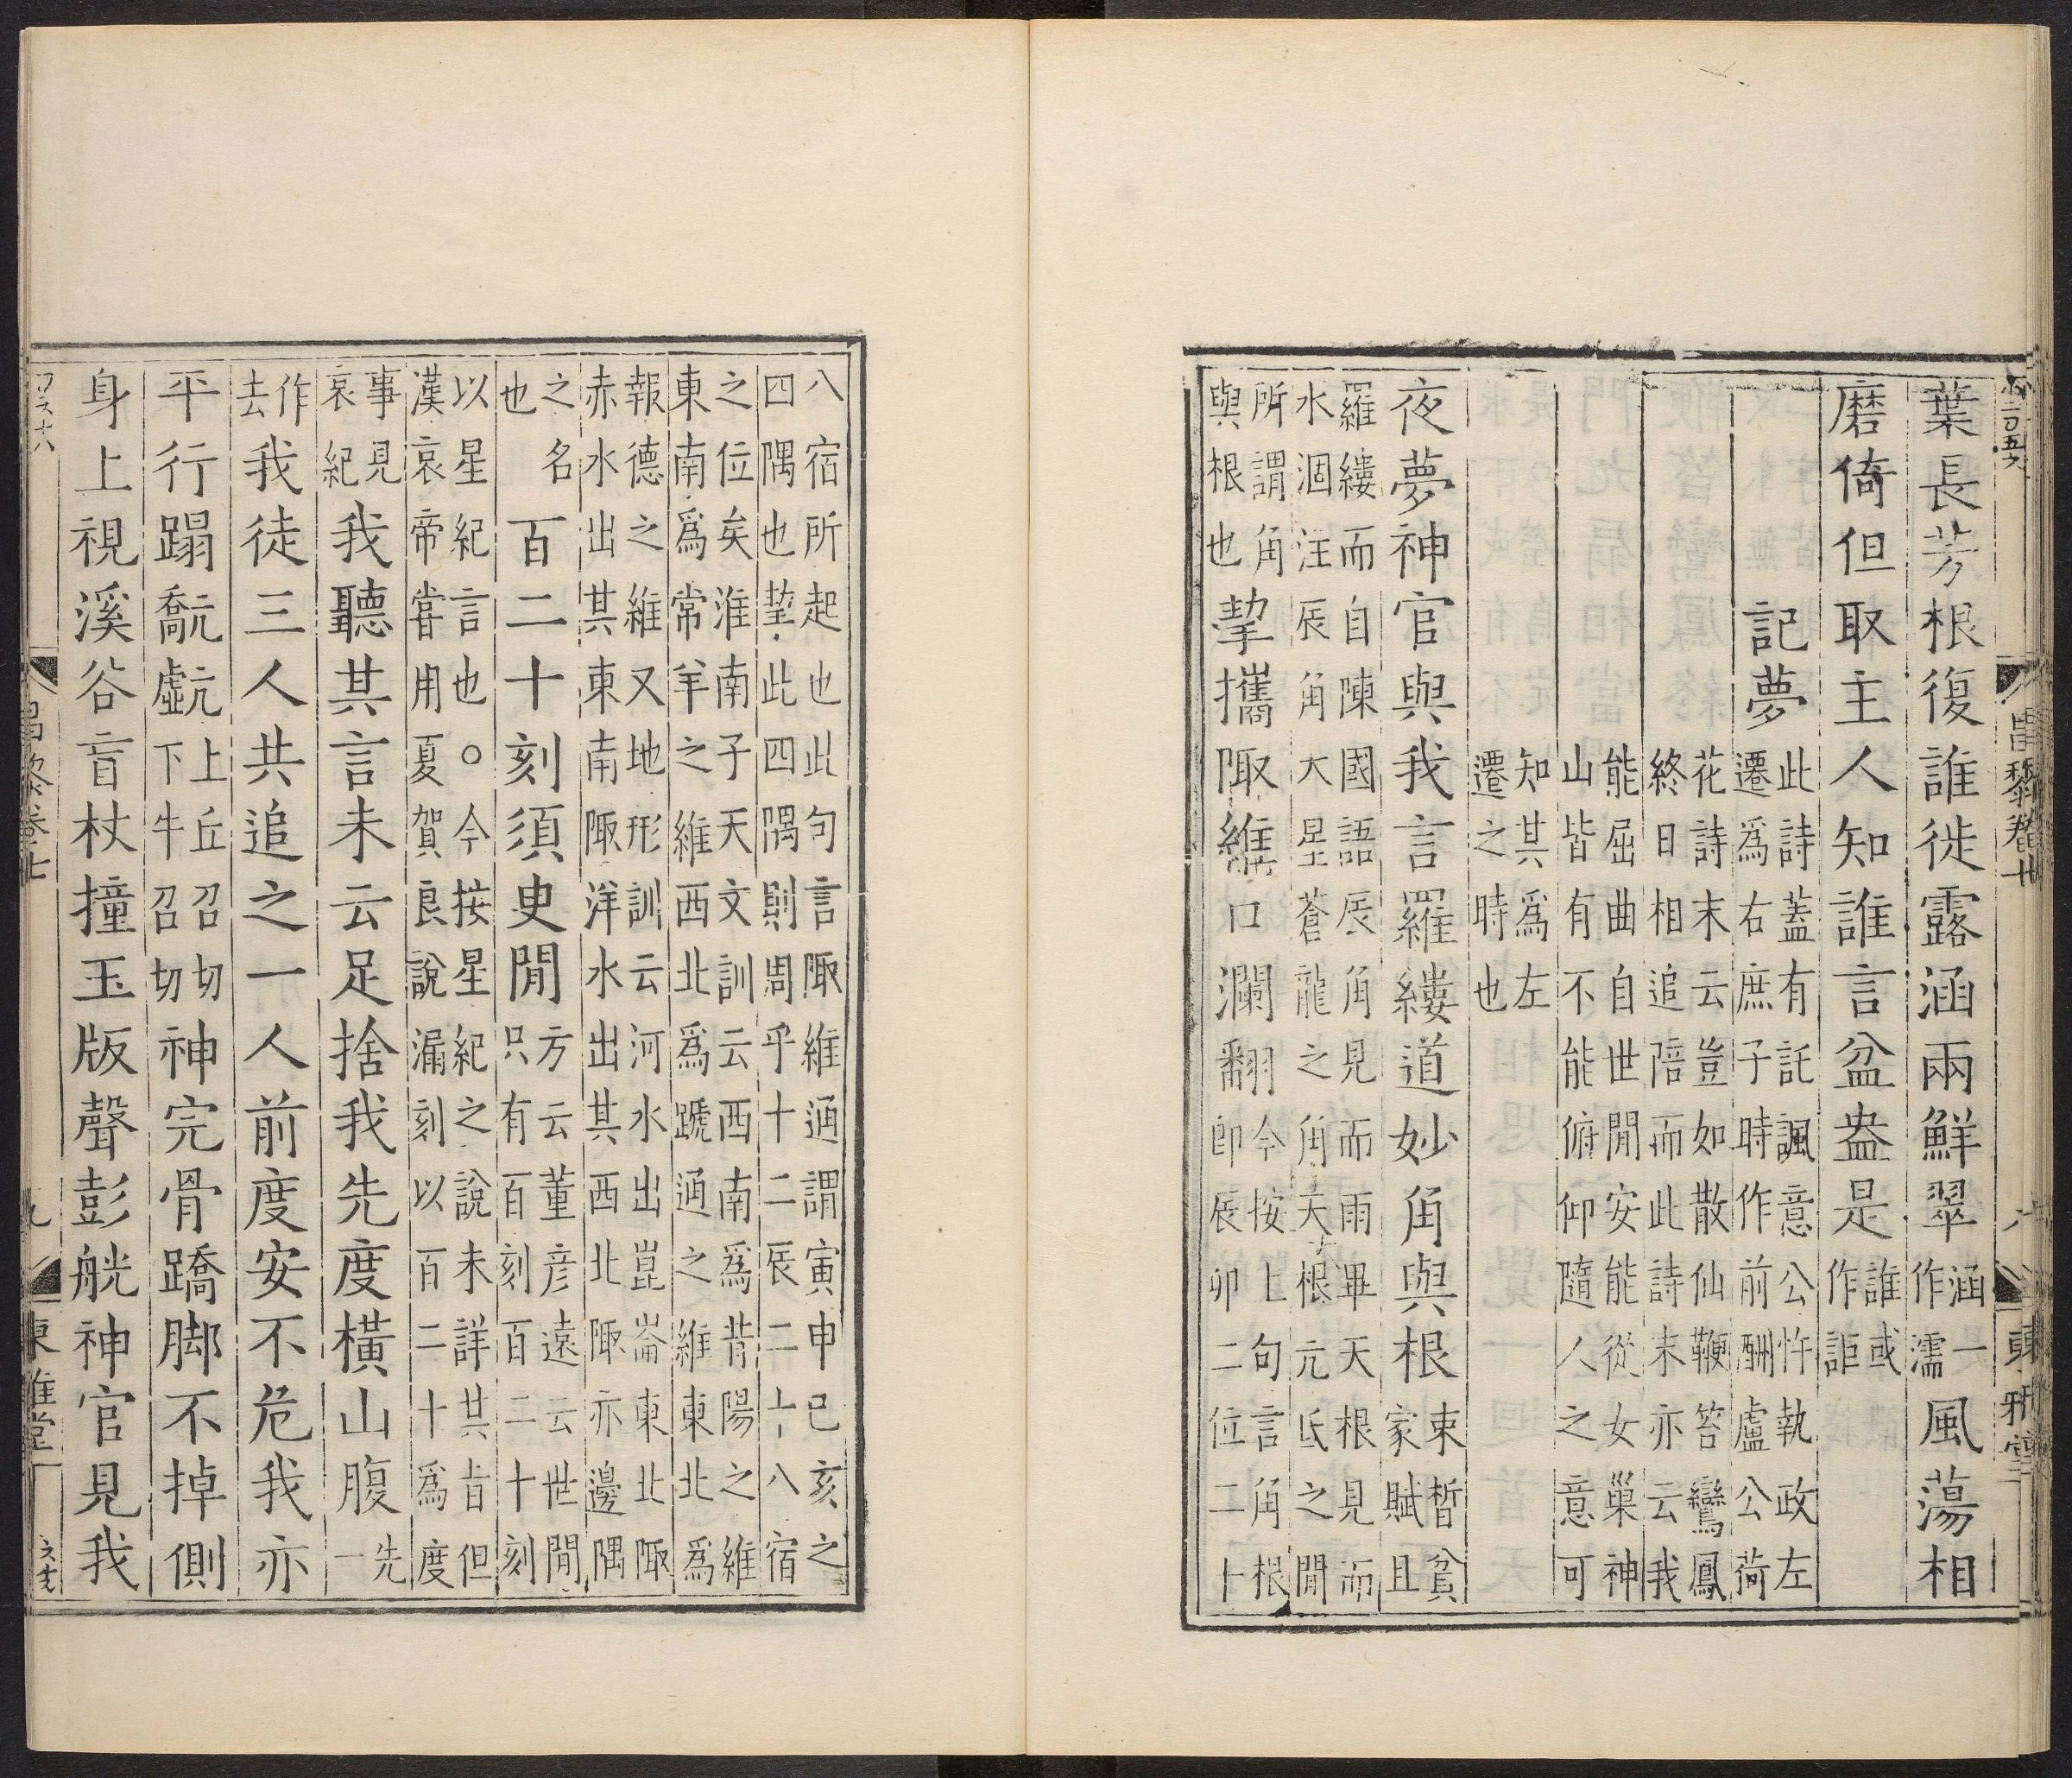 葉長芳根復誰徙露涵兩鮮翠涵一作濡風蕩相
磨倚但取主人知誰言盆盎是誰或作詎
記夢此詩蓋有託諷意公忤執政左遷爲右庶子時作前酬盧公荷
花詩末云豈如散仙鞭笞鸞鳳終日相追陪而此詩末亦云我
能屈曲自世閒安能從女巢神山皆有不能俯仰隨人之意可
知其爲左遷之時也
夜夢神官與我言羅縷道妙角與根束晳貧家賦且
羅縷而自陳國語辰角見而雨畢天根見而水涸注辰角大星蒼龍之角天根亢氐之閒
所謂角與根也挈攜陬維口瀾翻今按上句言角根卽辰卯二位二十
昌黎卷七
八
東雅堂
八宿所起也此句言陬維通謂寅申巳亥之四隅也挈此四隅則周乎十二辰二十八宿
之位矣淮南子天文訓云西南爲背陽之維東南爲常羊之維西北爲蹏通之維東北爲
報德之維又地形訓云河水出崑崙東北陬赤水出其東南陬洋水出其西北陬亦邊隅
之名也百二十刻須臾閒方云董彥遠云世閒只有百刻百二十刻
以星紀言也○今按星紀之說未詳其旨但漢哀帝嘗用夏賀良說漏刻以百二十爲度
事見哀紀我聽其言未云足捨我先度橫山腹先一
作去我徒三人共追之一人前度安不危我亦
平行蹋上丘召切下牛召切神完骨蹻脚不掉側
身上視溪谷盲杖撞玉版聲彭觥神官見我
昌黎卷七
九
東雅堂